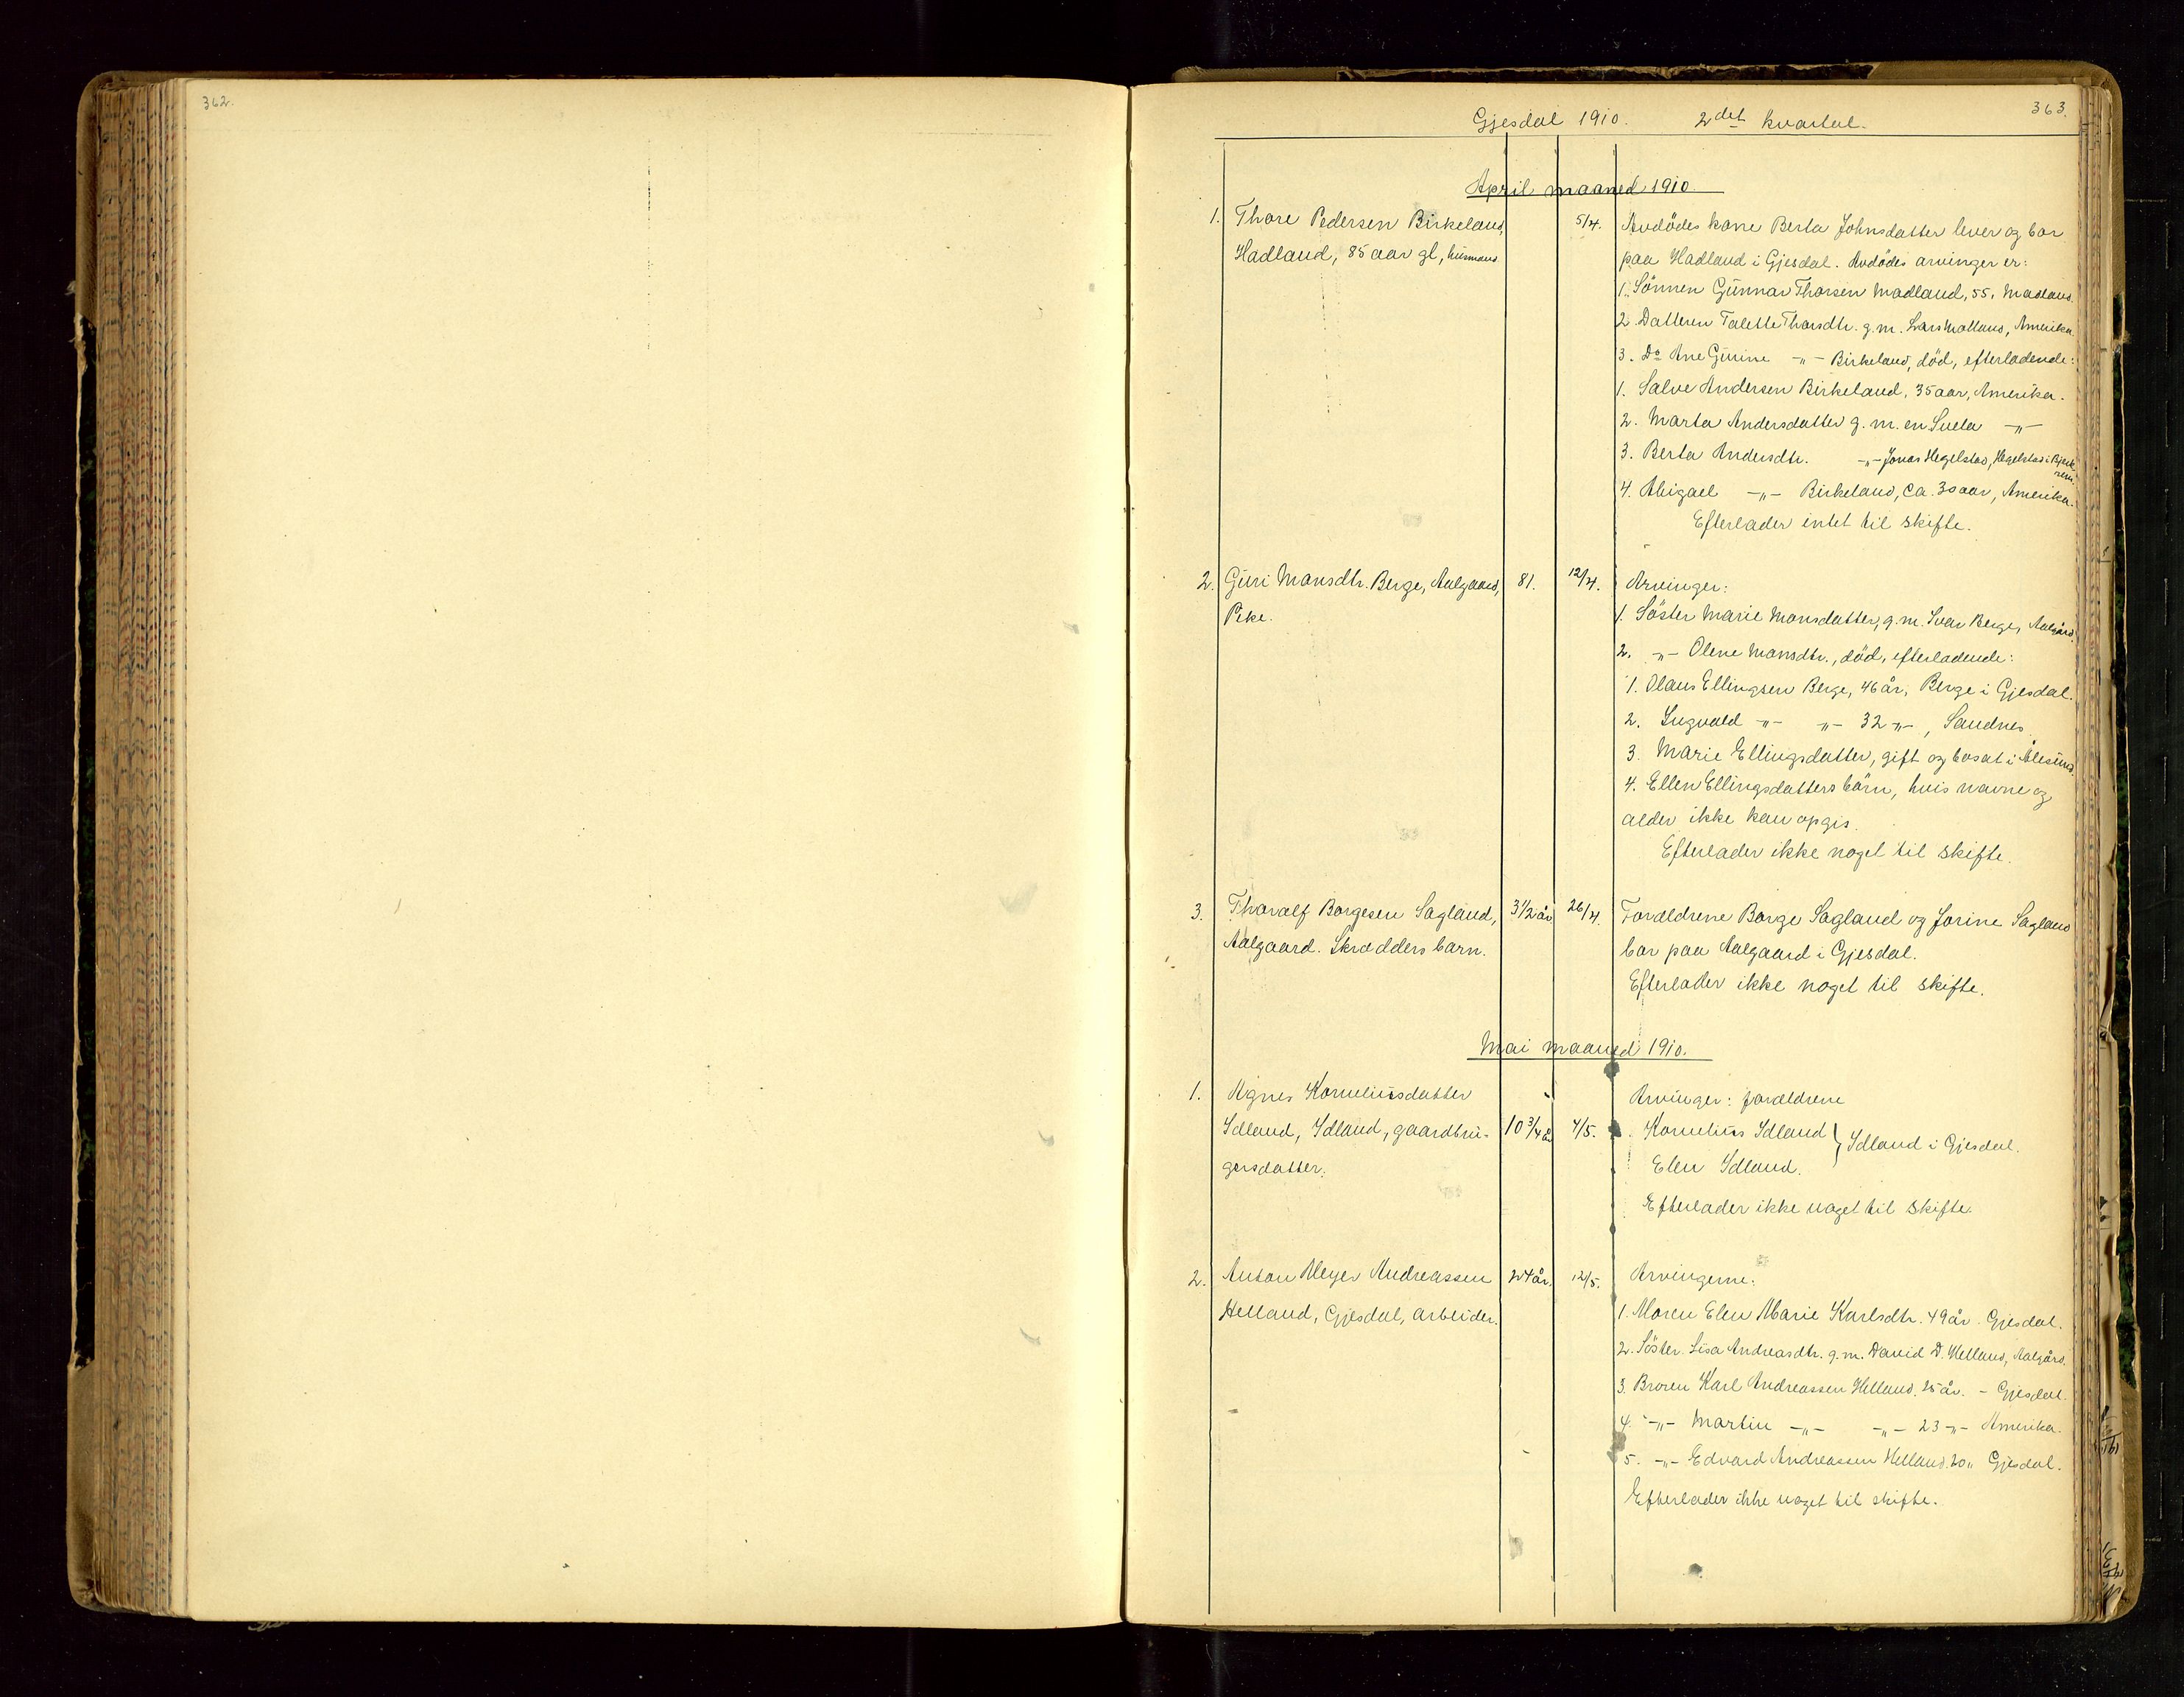 362.
363.
Gjesdal 1910. 2det kvartal.
April maaned 1910.
1. Thore Pedersen Birkeland, 5/4. Avdödes kone Berta Johnsdatter lever og bor
Hadland, 85 aar gl, husmand paa Hadland i Gjesdal. Avdödes arvinger er:
1. Sönnen Gunnar Thorsen Madland, 55, Madland.
2. Datteren Talette Thorsdtr. g.m. Lars Motland, Amerika.
3. Do Ane Gurine -"- Birkeland, död, efterladende:
1. Salve Andersen Birkeland, 35 aar, Amerika.
2. Marta Andersdatter g.m. en Svela -"-
3. Berta Andersdtr. -"- Jonas Hegelstad, Hegelstad i Bjerk-
rem.
4. Abigael -"- Birkeland, ca. 30 aar, Amerika.
Efterlader intet til skifte.
2. Guri Monsdtr. Berge, Aalgaard, 81. 12/4. Arvinger:
Pike. 1. Söster Marie Monsdatter, g.m. Ivar Berge, Aalgård.
2. -"- Olene Monsdtr., död, efterladende:
1. Olaus Ellingsen Berge, 46 år, Berge i Gjesdal.
2. Ingvald -"- -"- 32 -"-, Sandnes.
3. Marie Ellingsdatter, gift og bosat i Ålesund.
4. Ellen Ellingsdatters börn, hvis navne og
alder ikke kan opgis.
Efterlader ikke noget til skifte.
3. Thoralf Borgesen Sagland, 3 1/2 år 26/4. Forældrene Borge Sagland og Jorine Sagland
Aalgaard. Skrædders barn. bor paa Aalgaard i Gjesdal.
Efterlader ikke noget til skifte.
Mai maaned 1910.
1. Agnes Korneliusdatter Arvinger: forældrene
Idland, Idland, gaardbru- 10 3/4 å. 4/5. Kornelius Idland } Idland i Gjesdal.
gersdatter. Elen Idland.
Efterlader ikke noget til skifte.
2. Anton Meyer Andreassen 24 år. 12/5. Arvingerne:
Helland, Gjesdal, arbeider. 1. Moren Elen Marie Karlsdtr. 49 år. Gjesdal.
2. Söster Lisa Andreasdtr. g.m. David D. Helland, Aalgård.
3. Broren Karl Andreassen Helland. 25 år. - Gjesdal.
4. -"- Martin -"- -"- 23 -"- Amerika.
5. -"- Edvard Andreassen Helland. 20 " Gjesdal.
Efterlader ikke noget til skifte.